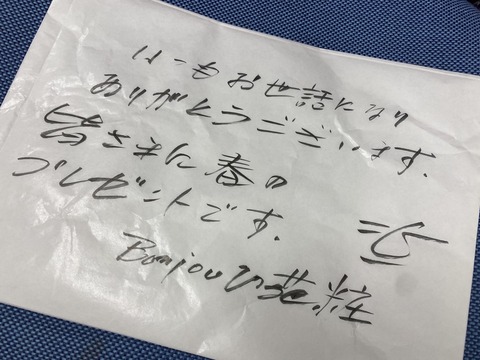 いつもお世話になり
ありがとうございます.
皆さまに春の
プレゼントです.
Bonjouの花粧